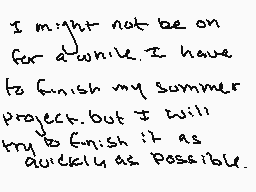 I might not be on
for a while. I have
to finish my summer
project. but I will
try to finish it as
quickly as possible.